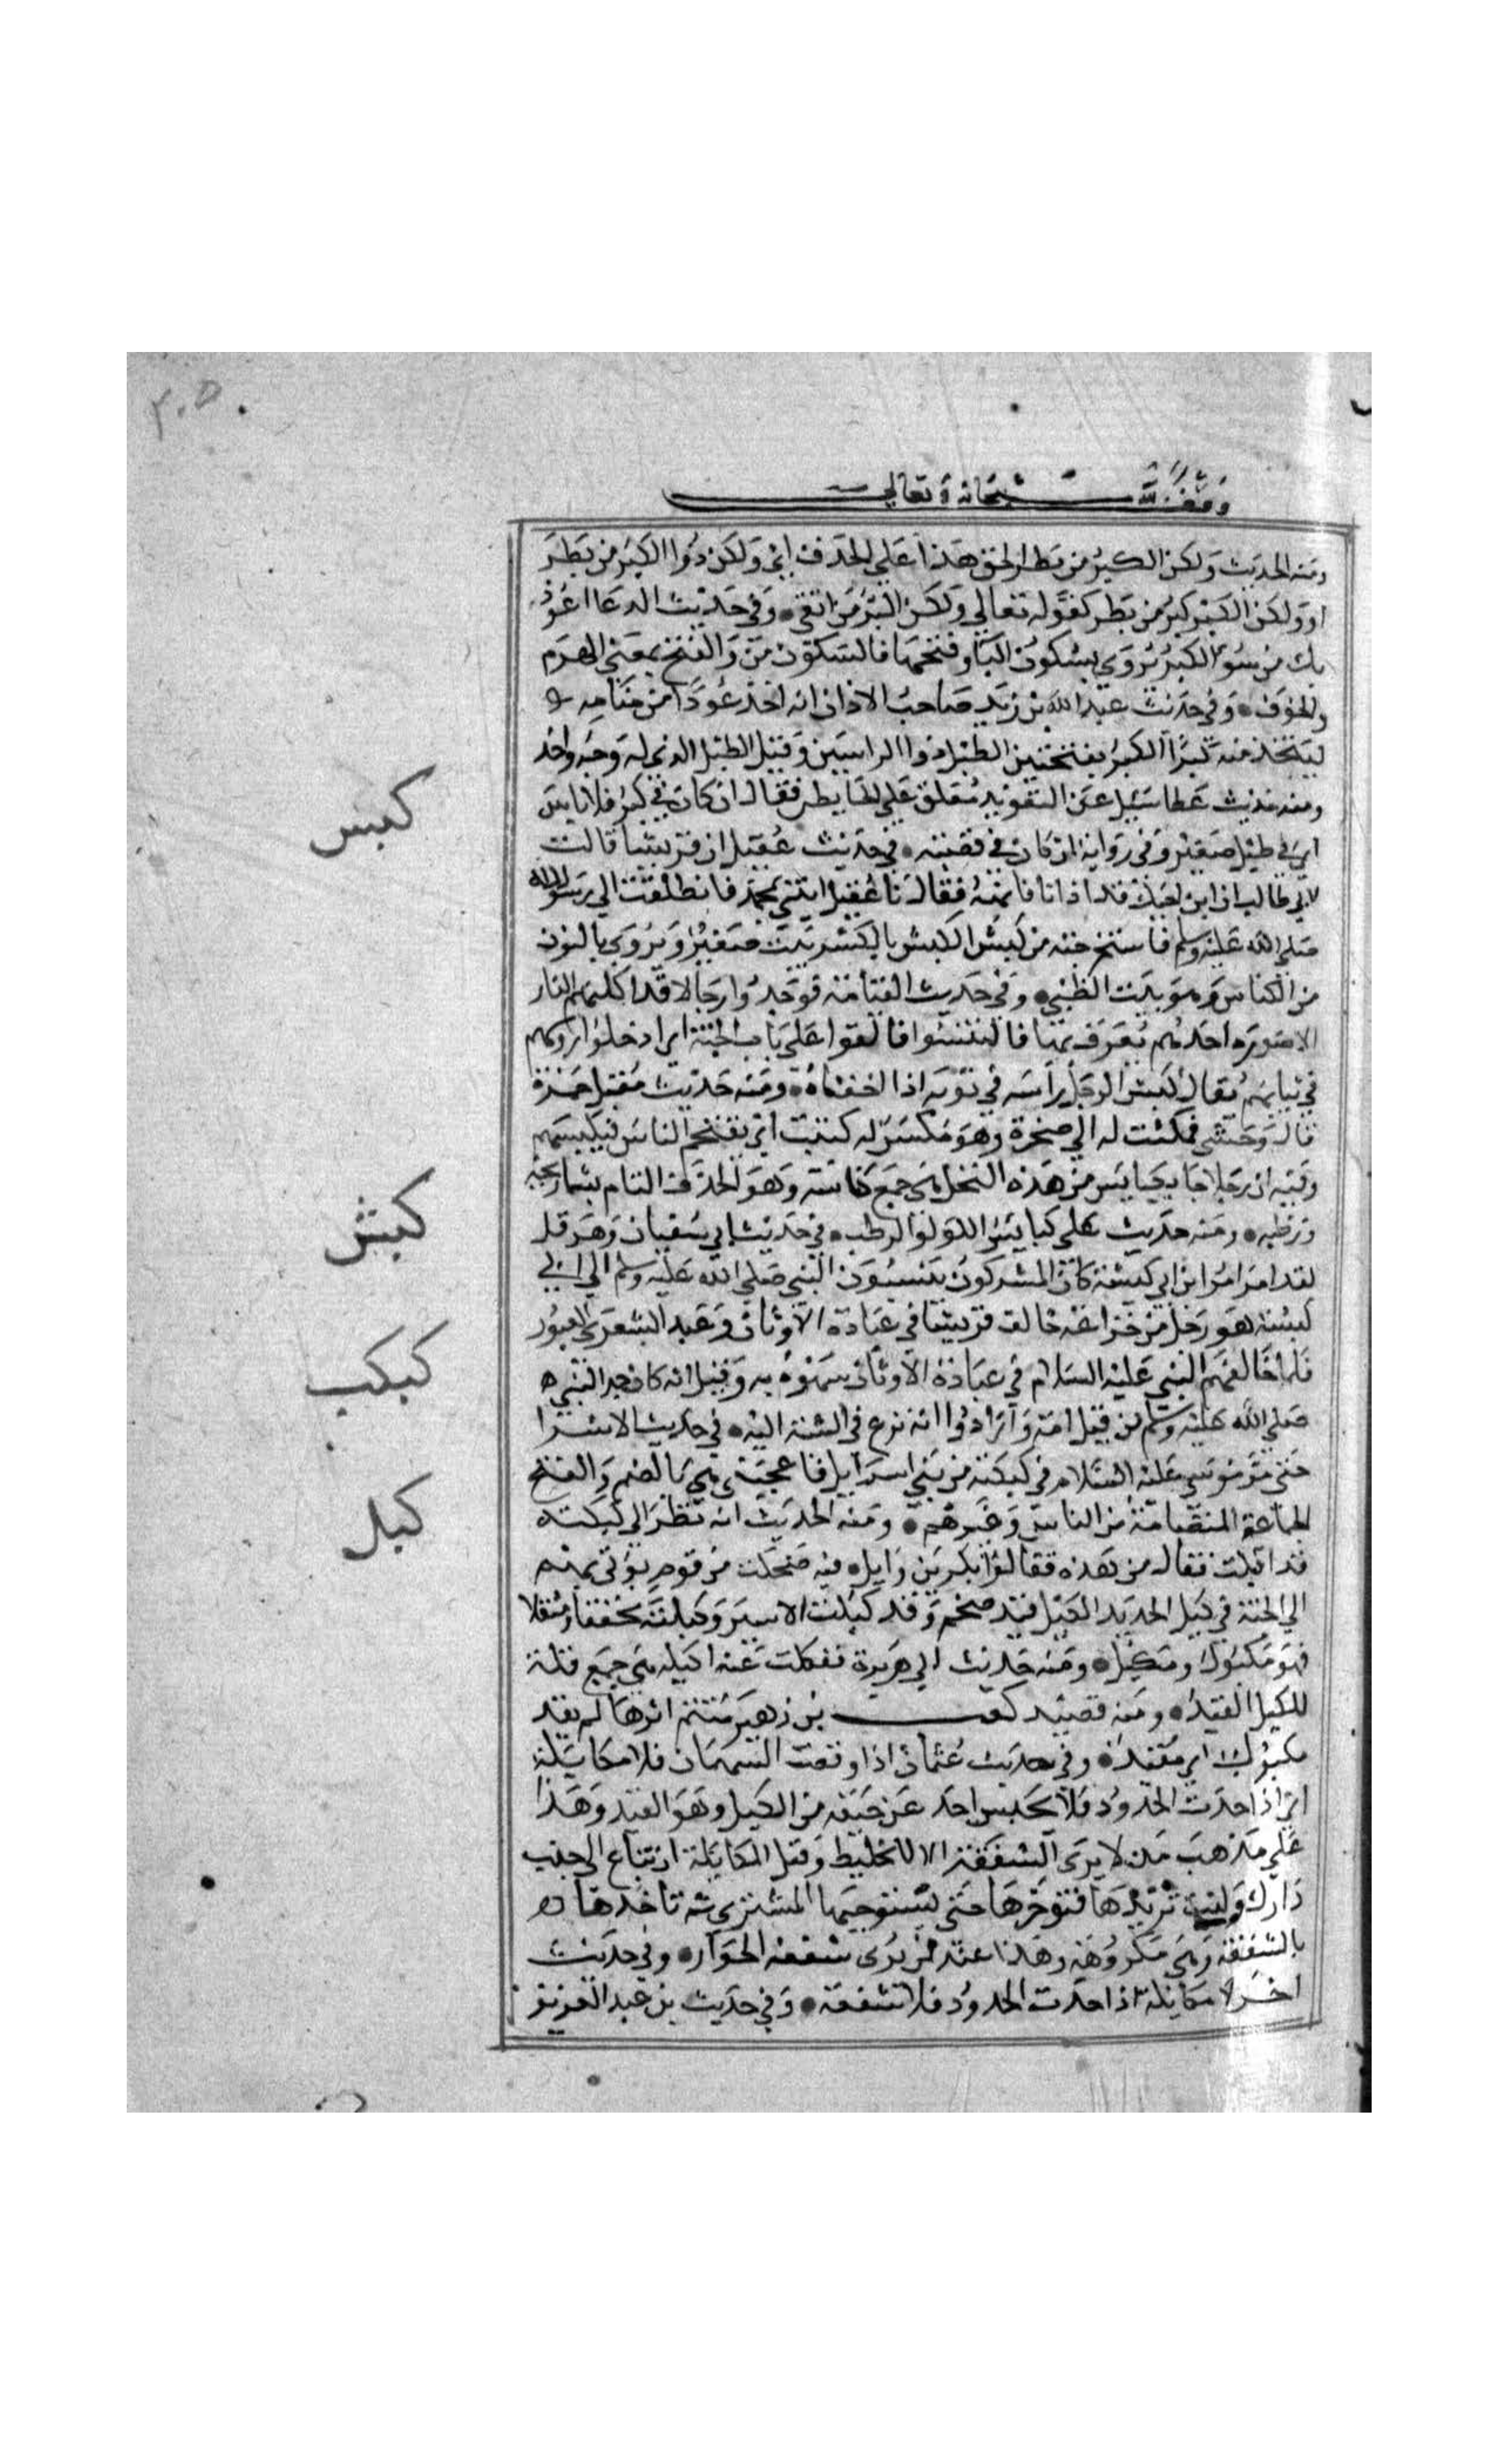 وقف لله سبحانه وتعالى
ومنه الحديث ولكن الكبر من بطر الحق هذا على الحذف اي ولكن ذوا الكبر من بطر
او ولكن الكبر كبر من بطر كقوله تعالي ولكن البر من اتقي وفي حديث الدعا اعوذ
بك من سوء الكبر يروي بسكون البا وفتحها فالسكون من والفتح بمعني الهرم
والخوف وفي حديث عبد الله بن زيد صاحب الاذان انه اخذ عودا من منامه
ليتخذ منه كبرا الكبر بفتحتين الطبل ذوا الراسين وقيل الطبل الذي له وجه واحد
ومنه حديث عطا سئيل عن التعويذ يتعلق علي الحايط فقال ان كان في كبر فلا باس
اي في طبل صغير وفي رواية ان كان في قصبة في حديث عقيل ان قريشا قالت
لابي طالب ان ابن اخيك قد اذانا فانهه فقال يا عقيل ايتني بمحمد فانطلقت الي رسول الله
صلي الله عليه وسلم فاستخرجته من كبس الكبس بالكسر بيت صغير ويروي بالنون
من الكناس وهو بيت الظبي وفي حديث القيامة فوجدوا رجالا قد اكلتهم النار
الا صورة احدهم يعرف بها فاكتبسوا فالقوا علي باب الجنة اي ادخلوا روسهم
في ثيابهم يقال كبس الرجل راسه في ثوبه اذا اخفاه ومنه حديث مقتل حمزة
قال وحشي فكمنت له الي صخرة وهو مكبس له كتيت اي يقتحم الناس فيكبسهم
وفيه ان رجلا جا بكبايس من هذه النخل هي جمع كباسة وهو العذق التام بشماريخه
ورطبه ومنه حديث علي كبايس اللولو الرطب في حديث ابي سفيان وهرقل
لقد امر امر ابن ابي كبشة كان المشركون ينسبون النبي صلي الله عليه وسلم الي ابي
كبشة هو رجل من خزاعة خالف قريشا في عبادة الاوثان وعبد الشعري العبور
فلما خالفهم النبي عليه السلام في عبادة الاوثان سموه به وقيل انه كان جد النبي
صلي الله عليه وسلم من قبل امه وارادوا انه نزع في الشبه اليه في حديث الاسرا
حتي مر موسي عليه السلام في كبكبة من بني اسرايل فاعجبني هي بالضم والفتح
الجماعة المتضامة من الناس وغيرهم ومنه الحديث انه نظر الي كبكبة
قد اقبلت فقال من هذه فقالوا بكر بن وايل فيه ضحكت من قوم يؤتي بهم
الي الجنة في كبل الحديد الكبل قيد ضخم وقد كبلت الاسير وكبلته مخففا ومثقلا
فهو مكبول ومكبل ومنه حديث ابي هريرة ففكت عنه اكبله هي جمع قلة
للكبل القيد ومنه قصيد كعب بن زهير متيم اثرها لم يفد
مكبول اي مقيد وفي حديث عثمان اذا وقعت السهمان فلا مكابلة
اي اذا حدت الحدود فلا يحبس احد عن حقه من الكبل وهو القيد وهذا
علي مذهب من لا يري الشفعة الا للخليط وقيل المكابلة ان تباع الي جنب
دارك وانت تريدها فتوخرها حتي يستوجبها المشتري ثم تاخذها
بالشفعة وهي مكروهة وهذا عند من يري شفعة الجوار وفي حديث
اخر لا مكابلة اذا حدت الحدود فلا شفعة وفي حديث بن عبد العزيز
كبس
كبش
كبكب
كبل